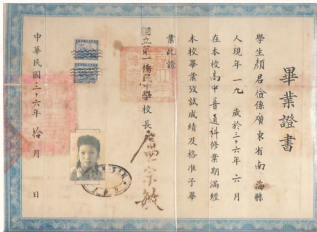 畢業證書
學生顏君係廣東省南海縣
人現年一九歲於三六年六月
在本校高中普通科修業期滿經
本校畢業考試成績及格准予畢
業此證
國立第一僑民中學校長
中華民國三六年拾月 日